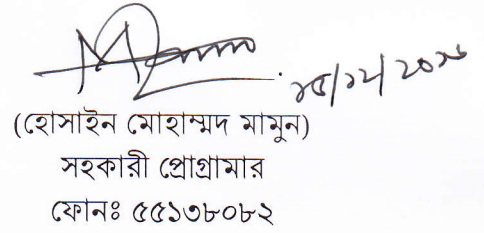 (হোসাইন মোহাম্মদ মামুন)
সহকারী প্রোগ্রামার
ফোনঃ ৫৫১৩৮০৮২